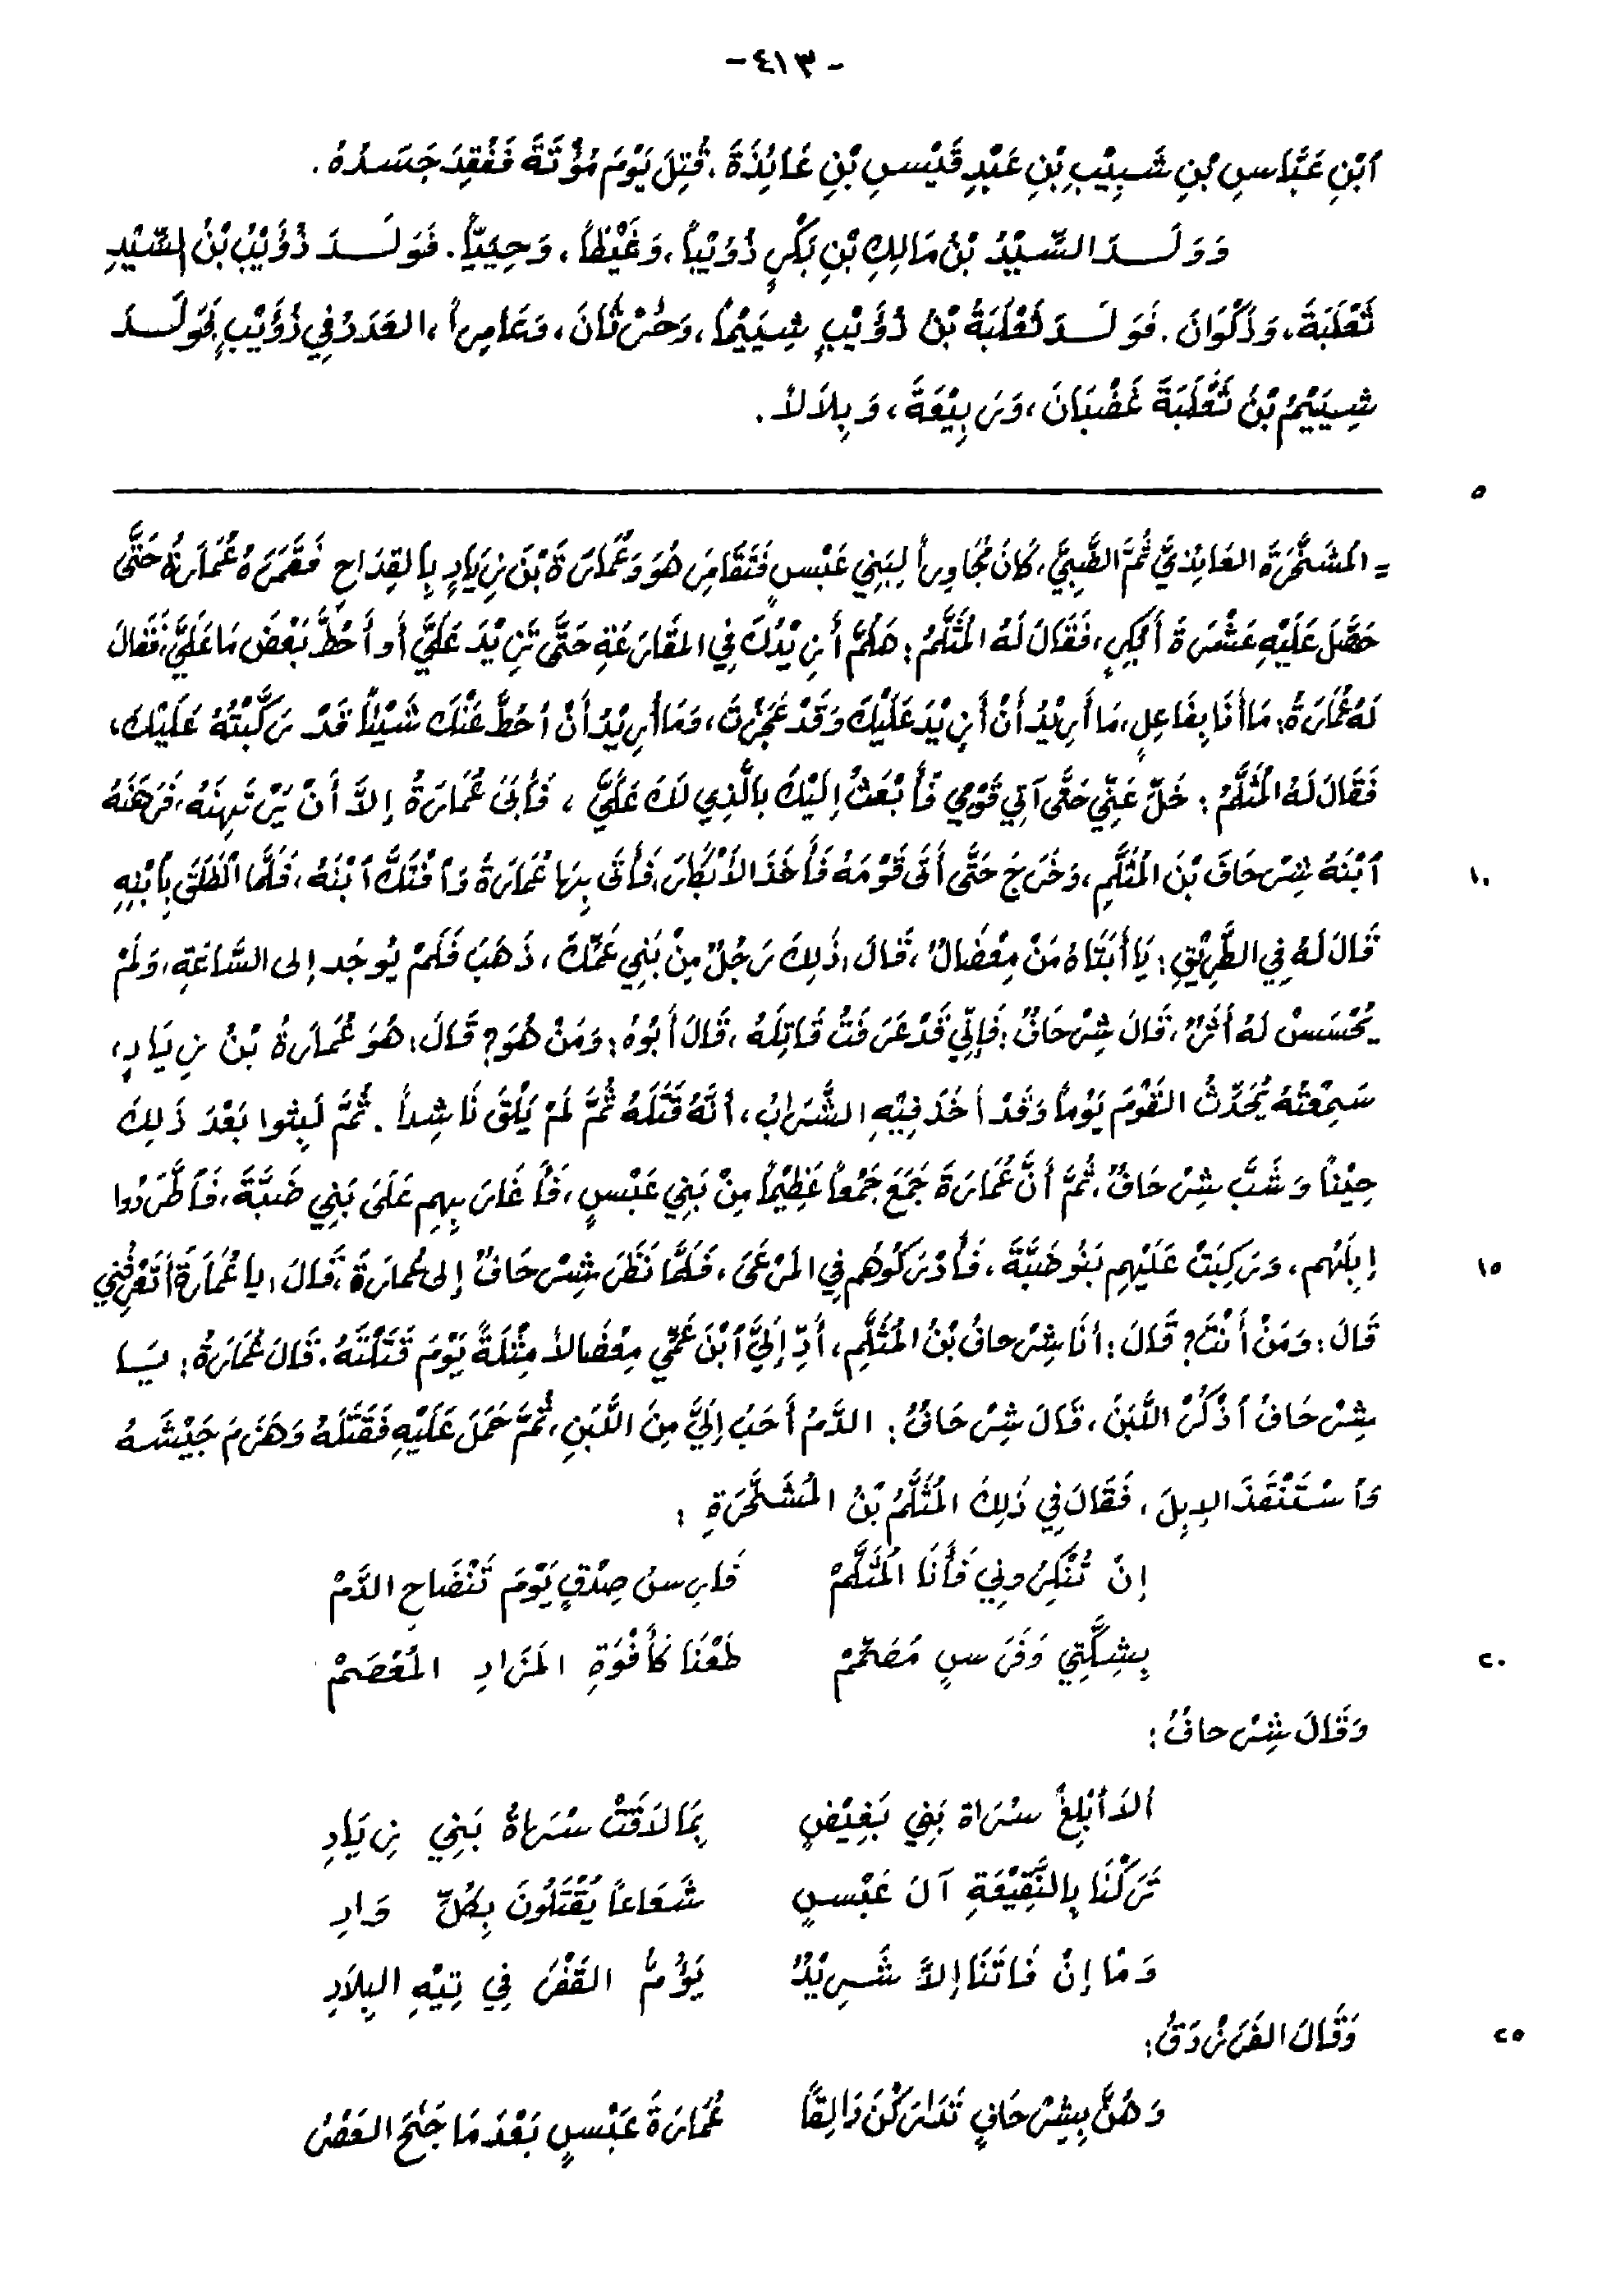 - ٤١٣ -
ٱبْنِ عَبَّاسِ بْنِ شَبِيْبِ بْنِ عَبْدِ قَيْسِ بْنِ عَائِذَةَ. قُتِلَ يَوْمَ مُؤْتَةَ فَفُقِدَ جَسَدُهُ.
وَوَلَدَ السِّيْدُ بْنُ مَالِكِ بْنِ بَكْرٍ ذُؤَيْباً، وَغَيْظاً، وَحِيَيّاً. فَوَلَدَ ذُؤَيْبُ بْنُ السِّيْدِ
ثَعْلَبَةَ، وَذَكْوَانَ. فَوَلَدَ ثَعْلَبَةُ بْنُ ذُؤَيْبٍ شِيَيْماً، وَحُرْثَانَ، وَعَامِراً، العَدَدُ فِي ذُؤَيْبٍ. فَوَلَدَ
شِيَيْمُ بْنُ ثَعْلَبَةَ غَضْبَانَ، وَرَبِيْعَةَ، وَبِلاَلاً.
٥
= المُشَخَّرَةَ العَائِذِيَّ ثُمَّ الضَّبِّيَّ، كَانَ مُجَاوِراً لِبَنِي عَبْسٍ فَتَقَامَرَ هُوَ وَعُمَارَةَ بْنَ زِيَادٍ بِالقِدَاحِ فَقَمَرَهُ عُمَارَةُ حَتَّى
حَصَّلَ عَلَيْهِ عَشْرَةَ أَبْكُرٍ، فَقَالَ لَهُ المُثَلَّمُ: هَلُمَّ أُزِيْدُكَ فِي المُقَارَعَةِ حَتَّى تَزِيْدَ عَلَيَّ أو أَحُطَّ بَعْضَ مَا عَلَيَّ، فَقَالَ
لَهُ عُمَارَةُ: مَا أَنَا بِفَاعِلٍ، مَا أُرِيْدُ أَنْ أَزِيْدَ عَلَيْكَ وَقَدْ عَجَزْتَ، وَمَا أُرِيْدُ أَنْ أَحُطَّ عَنْكَ شَيْئاً قَدْ رَكَّبْتُهُ عَلَيْكَ،
فَقَالَ لَهُ المُثَلَّمُ: خَلِّ عَنِّي حَتَّى آتِي قَوْمِي فَأَبْعَثُ إِلَيْكَ بِالَّذِي لَكَ عَلَيَّ، فَأَبَى عُمَارَةُ إِلاَّ أَنْ يَرْتَهِنَهُ، فَرَهَنَهُ
١٠ ٱبْنَهُ شِرْحَافَ بْنَ المُثَلَّمِ، وَخَرَجَ حَتَّى أَتَى قَوْمَهُ فَأَخَذَ الأَبْكَارَ، فَأَتَى بِهَا عُمَارَةَ وَٱفْتَكَّ ٱبْنَهُ، فَلَمَّا ٱنْطَلَقَ بِٱبْنِهِ
قَالَ لَهُ فِي الطَّرِيْقِ: يَا أَبَتَاهُ مَنْ مِعْضَالٌ، قَالَ: ذَلِكَ رَجُلٌ مِنْ بَنِي عَمِّكَ، ذَهَبَ فَلَمْ يُوجَد إلى السَّاعَةِ، وَلَمْ
يُحْسَسْ لَهُ أَثَرٌ، قَالَ شِرْحَافٌ: فَإِنِّي قَدْ عَرَفْتُ قَاتِلَهُ، قَالَ أَبُوهُ: وَمَنْ هُوَ؟ قَالَ: هُوَ عُمَارَةُ بْنُ زِيَادٍ،
سَمِعْتُهُ يُحَدِّثُ القَوْمَ يَوْماً وَقَدْ أَخَذَ فِيْهِ الشَّرَابُ، أَنَّهُ قَتَلَهُ ثُمَّ لَمْ يَلْقَ نَاشِداً. ثُمَّ لَبِثُوا بَعْدَ ذَلِكَ
حِيْناً وَشَبَّ شِرْحَافٌ، ثُمَّ أَنَّ عُمَارَةَ جَمَعَ جَمْعاً عَظِيْماً مِنْ بَنِي عَبْسٍ، فَأَغَارَ بِهِمِ عَلَى بَنِي ضَبَّةَ، فَأَطْرَدُوا
١٥ إِبِلَهُم، وَرَكِبَتْ عَلَيْهِم بَنُو ضَبَّةَ، فَأَدْرَكُوهُم فِي المَرْعَى، فَلَمَّا نَظَرَ شِرْحَافٌ إلى عُمارَةَ، قَالَ: يا عُمَارَةَ أَتَعْرِفُنِي
قَالَ: وَمَنْ أَنْتَ؟ قَالَ: أَنَا شِرْحافُ بْنُ المُثَلَّمِ، أَدِّ إِلَيَّ ٱبْنَ عَمِّي مِعْضَالاً مِثْلَهُ يَوْمَ قَتَلْتَهُ. قَالَ عُمَارَةُ: يَا
شِرْحَافُ ٱذْكُرْ اللَّبَنَ، قَالَ شِرْحَافٌ: الدَّمُ أَحَبُّ إِلَيَّ مِنَ اللَّبَنِ، ثُمَّ حَمَلَ عَلَيْهِ فَقَتَلَهُ وَهَزَمَ جَيْشَهُ
وَٱسْتَنْقَذَ الإِبِلَ، فَقَالَ فِي ذَلِكَ المُثَلَّمُ بْنُ المُشَخَّرَةِ:
إِنْ تُنْكِرُونِي فَأَنَا المُثَلَّمْ فَارِسُ صِدْقٍ يَوْمَ تَنْضَاحِ الدَّمْ
٢٠ بِشِكَّتِي وَفَرَسٍ مُصَمِّمْ طَعْنَا كَأَفْوَةِ المَزَادِ المُعْصَمْ
وَقَالَ شِرْحافُ:
أَلاَ أَبْلِغْ سَرَاةَ بَنِي بَغِيْضٍ بِمَا لاَقَتْ سَرَاةُ بَنِي زِيَادِ
تَرَكْنَا بِالنَّقِيْعَةِ آلَ عَبْسٍ شَعَاعاً يُقْتَلُونَ بِكُلِّ وَادِ
وَمَا إِنْ فَاتَنَا إِلاَّ شَرِيْدٌ يَؤُمُّ القَفْرَ فِي تِيْهِ البِلاَدِ
٢٥ وَقَالَ الفَرَزْدَقُ:
وَهُنَّ بِشِرْحَافٍ تَدَارَكْنَ دَالِقًا عُمَارَةَ عَبْسٍ بَعْدَ مَا جَنَحَ العَصْرُ